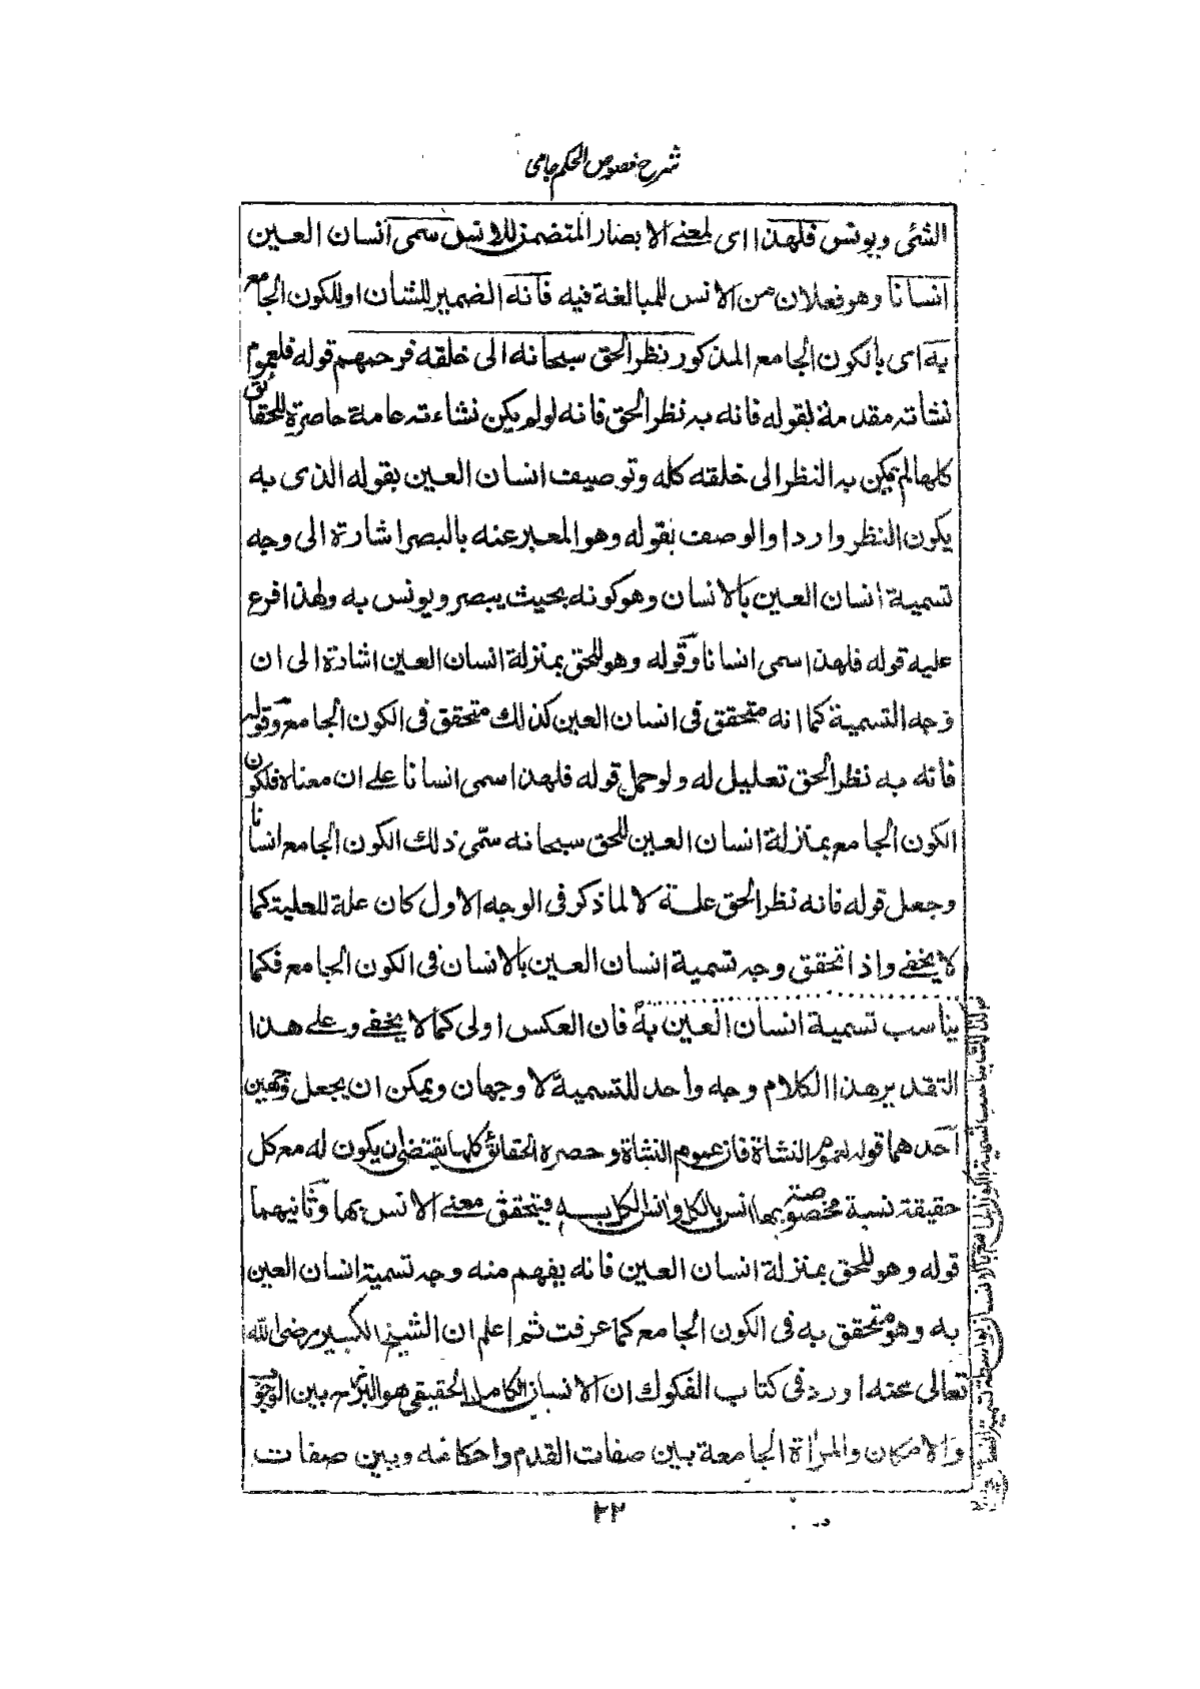 شرح فصوص الحكم جامى
الشئى ويونس فلهذا اى لمعنے الابصار المتضمن للانس سمى انسان العين
انسانا وهو فعلان من الانس للمبالغة فيه فانه الضمير للشان او للكون الجامع
به اى بالكون الجامع المذكور نظر الحق سبحانه الى خلقه فرحمهم قوله فلعموم
نشاته مقدمة لقوله فانه به نظر الحق فانه لو لم يكن نشاءته عامة حاصرة للحقائق
كلها لم يمكن به النظر الى خلقه كله وتوصيف انسان العين بقوله الذى به
يكون النظر واردا والوصف بقوله وهو المعبر عنه بالبصر اشارة الى وجه
تسمية انسان العين بالانسان وهو كونه بحيث يبصر ويونس به ولهذا فرع
عليه قوله فلهذا سمى انسانا وقوله وهو للحق بمنزلة انسان العين اشارة الى ان
وجه التسمية كما انه متحقق فى انسان العين كذلك متحقق فى الكون الجامع وقوله
فانه به نظر الحق تعليل له ولو حمل قوله فلهذا سمى انسانا علے ان معناه فلكون
الكون الجامع بمنزلة انسان العين للحق سبحانه سمّى ذلك الكون الجامع انسانا
وجعل قوله فانه نظر الحق علة لا لما ذكر فى الوجه الاول كان علة للعلية كما
لا يخفے واذا تحقق وجه تسمية انسان العين بالانسان فى الكون الجامع فكما
يناسب تسمية انسان العين به فان العكس اولى كما لا يخفے وعلے هذا
التقدير هذا الكلام وجه واحد للتسمية لا وجهان ويمكن ان يجعل وجهين
احدهما قوله لعموم النشاة فان عموم النشاة وحصره الحقائق كلها يقتضى ان يكون له مع كل
حقيقة نسبة مخصوصة بها انس بالكل وانس الكل به فيتحقق معنے الانس بها وثانيهما
قوله وهو للحق بمنزلة انسان العين فانه يفهم منه وجه تسمية انسان العين
به وهو متحقق به فى الكون الجامع كما عرفت ثم اعلم ان الشيخ الكبير رضى الله
تعالى عنه اورد فى كتاب الفكوك ان الانسان الكامل الحقيقى هو البرزخ بين الوجوب
والامكان والمراة الجامعة بين صفات القدم واحكامه وبين صفات
٢٢